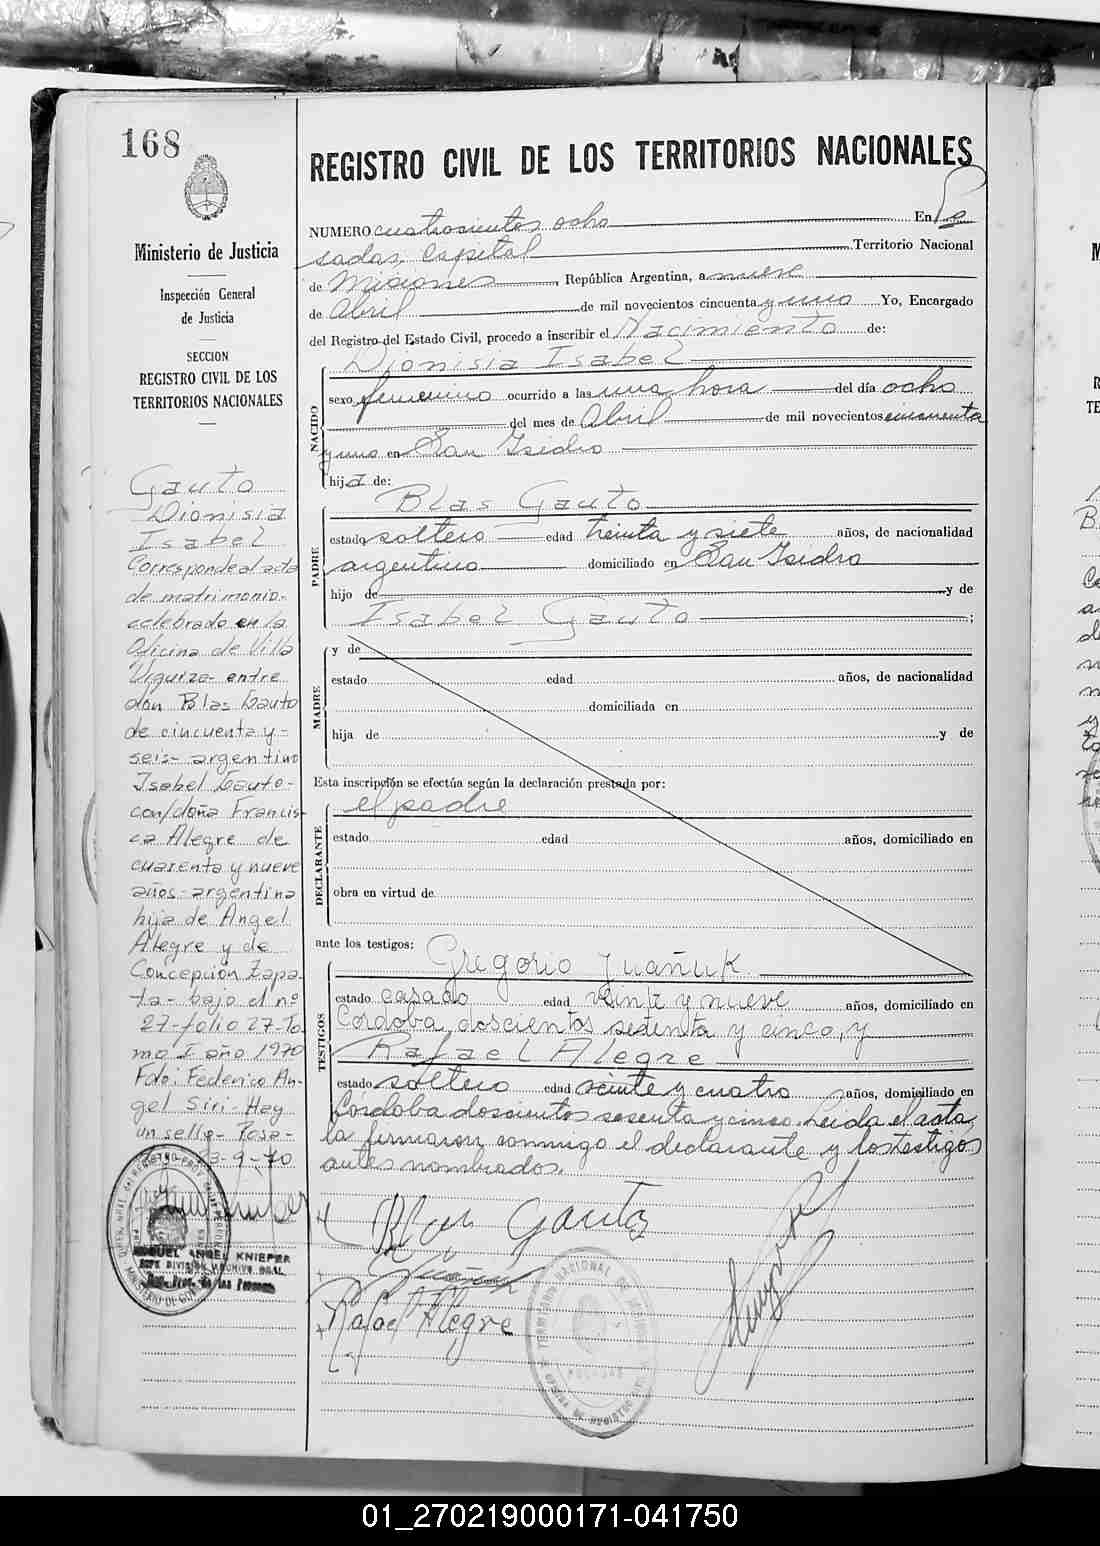 168
Ministerio de Justicia
Inspección General
de Justicia
SECCION
REGISTRO CIVIL DE LOS
TERRITORIOS NACIONALES
Gauto
Dionisia
Isabel
Corresponde al acta
de matrimonio-
celebrado en la
Oficina de Villa
Urquiza- entre
don Blas Gauto
de cincuenta y-
seis- argentino
Isabel Gauto-
con/doña Francis-
ca Alegre de
cuarenta y nueve
años-argentina
hija de Angel
Alegre y de
Concepción Zapa-
ta- bajo el nº
27-folio 27-To
mo I año 1970
Fdo: Federico An-
gel Siri- Hay
un sello- Posa-
3-9-70
MIGUEL ANGEL KNIEPER
JEFE DIVISION ARCHIVO GRAL.
REGISTRO CIVIL DE LOS TERRITORIOS NACIONALES
NUMERO cuatrocientos ocho En Po
sadas Capital Territorio Nacional
de Misiones, República Argentina, a nueve
de Abril de mil novecientos cincuenta y uno Yo, Encargado
del Registro del Estado Civil, procedo a inscribir el Nacimiento de:
NACIDO
Dionisia Isabel
sexo femenino ocurrido a las una hora del día ocho
del mes de Abril de mil novecientos cincuenta
y uno en San Isidro
hija de:
PADRE
Blas Gauto
estado soltero edad treinta y siete años, de nacionalidad
argentino domiciliado en San Isidro
hijo de y de
Isabel Gauto ;
MADRE
y de
estado edad años, de nacionalidad
domiciliada en
hija de y de
Esta inscripción se efectúa según la declaración prestada por:
DECLARANTE
el padre
estado edad años, domiciliado en
obra en virtud de
ante los testigos:
TESTIGOS
Gregorio Juañuk
estado casado edad veinte y nueve años, domiciliado en
Cordoba doscientos setenta y cinco, y
Rafael Alegre
estado soltero edad veinte y cuatro años, domiciliado en
Córdoba doscientos sesenta y cinco. Leida el acta,
la firmaron conmigo el declarante y los testigos
antes nombrados.
Blas Gauto
Rafael Alegre
01_270219000171-041750